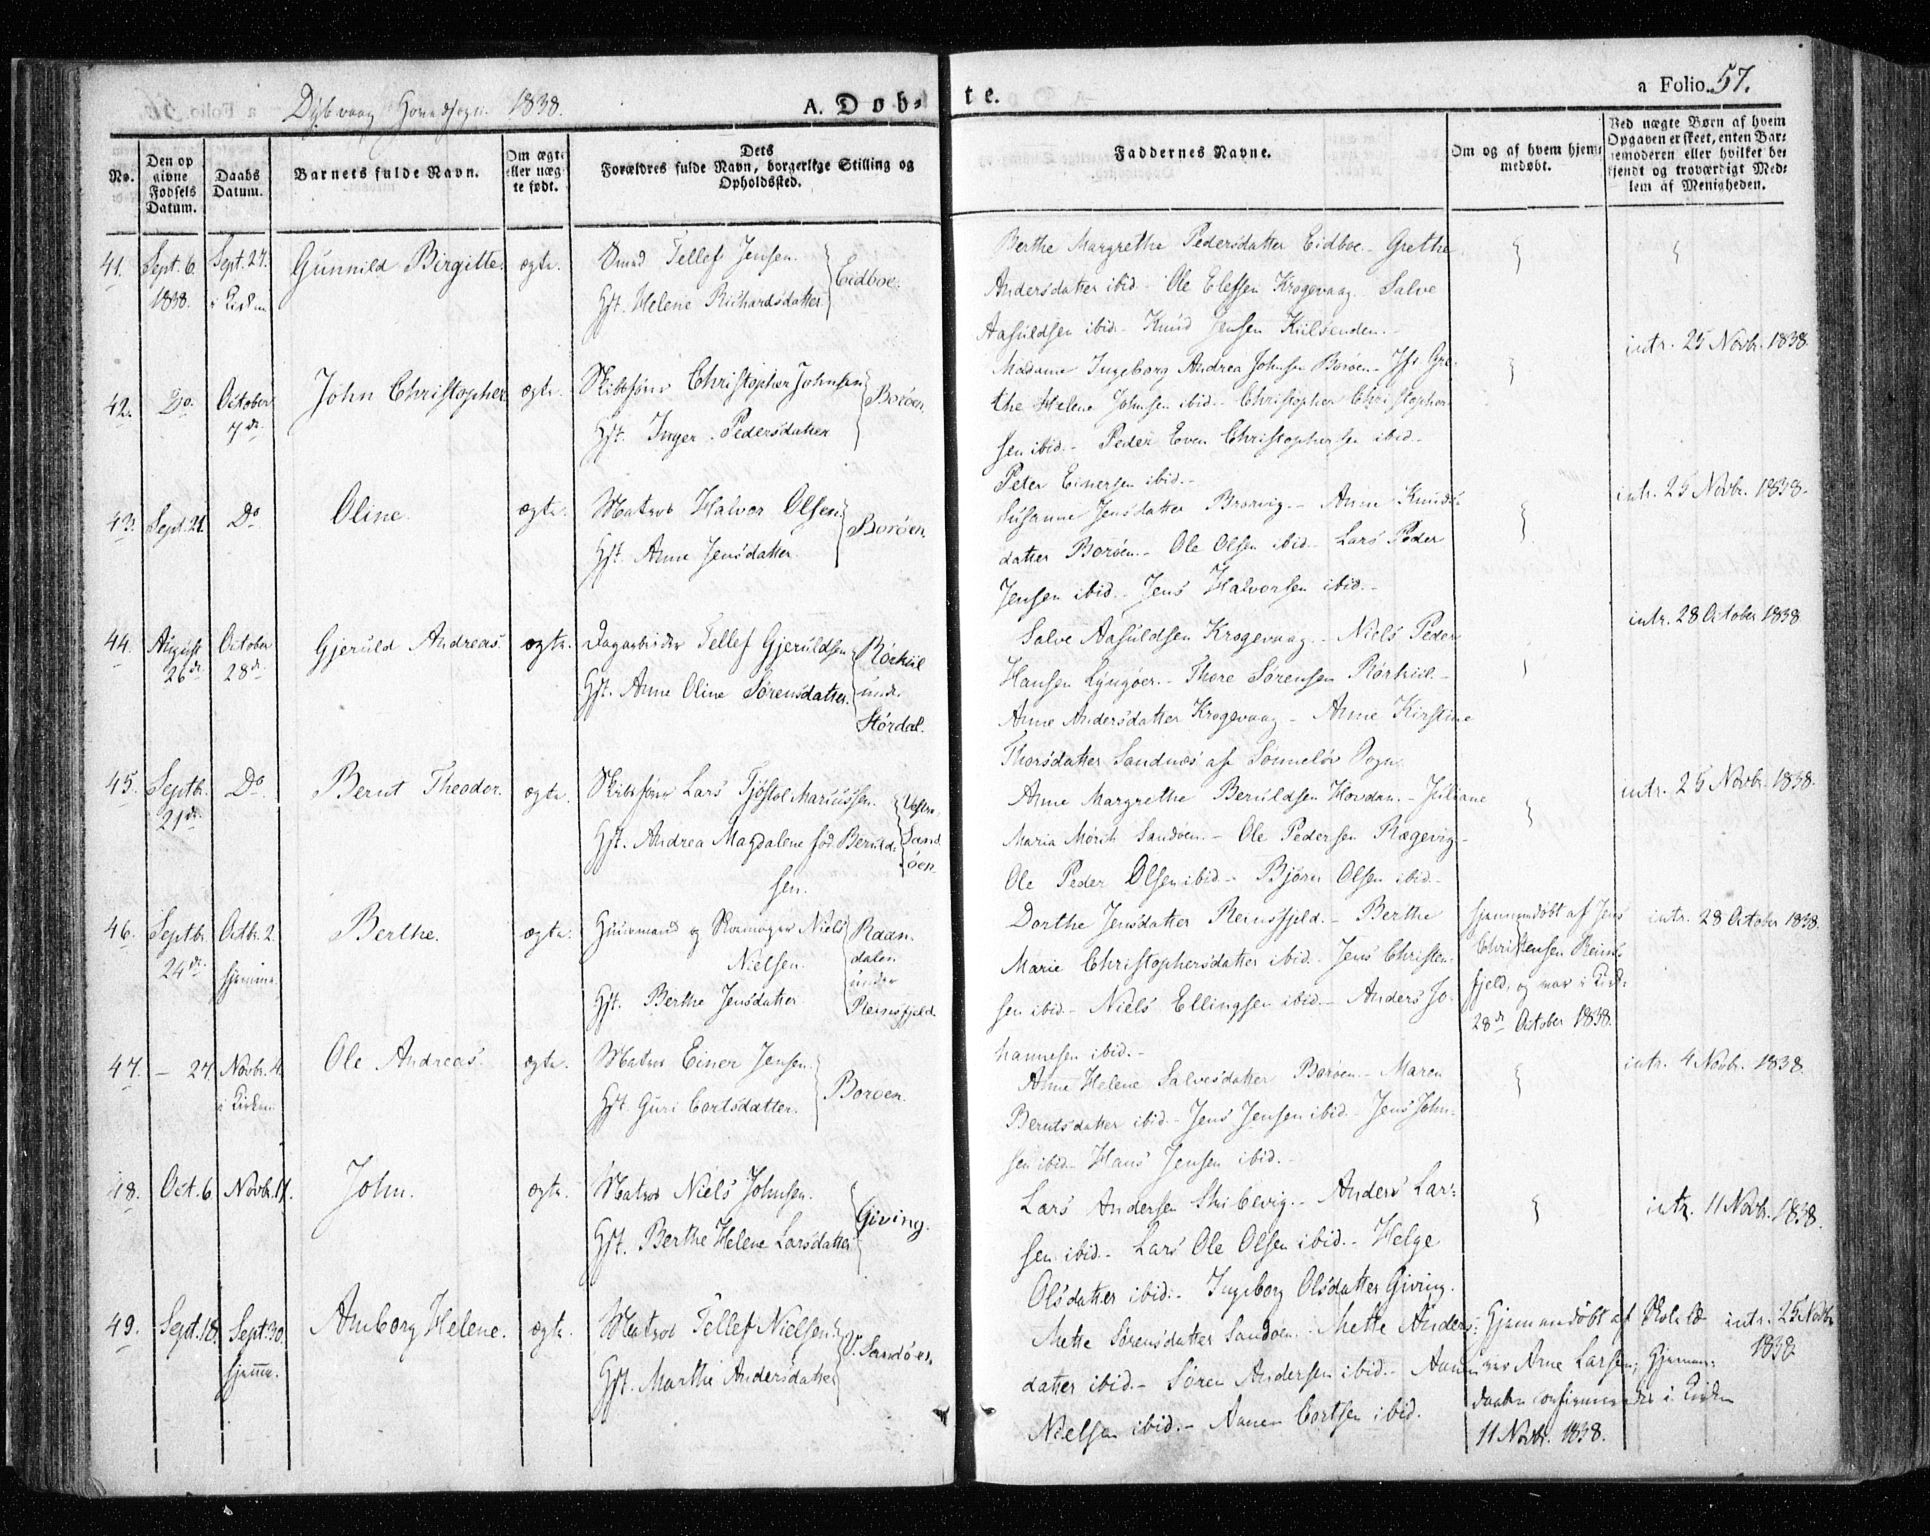 Dybvaag Hovedsogn 1838.
A. Døb-
te.
a Folio 57.
No.
Den op
givne
Fødsels
Datum.
Daabs
Datum.
Barnets fulde Navn.
Om ægte
eller uæg-
te født.
Dets
Forældres fulde Navn, borgerlige Stilling og
Opholdssted.
Faddernes Navne.
Om og af hvem hjem-
medøbt.
Ved uægte Børn af hvem
Opgaven er skeet, enten Bar-
nemoderen eller hvilket be-
kjendt og troværdigt Med-
lem af Menigheden.
41. Sept. 6. Sept. 27. Gunnild Birgitte. ægte. Tellef Jensen. Eidboe.
1838. i Kirken
Hst. Helene Richardsdatter
Berthe Margrethe Pedersdatter Eidboe - Grethe
Andersdatter ibid - Ole Elefsen Krogevaag. Salve
Aasuldsen ibid - Knud Jensen Kiilsenden. -
intr. 25 Novbr. 1838.
42. Do. October John Christopher ægte. Skibsfører Christopher Johnsen Borøen.
7de.
Hst. Inger Pedersdatter
Madame Ingeborg Andrea Johnsen Borøen - Jfr Gre-
the Helene Johnsen ibid - Christopher Christopher-
sen ibid. - Peder Even Christophersen ibid -
Peter Einersen ibid. -
intr. 25 Novbr. 1838.
43. Sept. 21. Do Oline. ægte. Matros Halvor Olsen. Borøen.
Hst. Anne Jensdatter.
Susanne Jensdatter Brorvig. - Anne Knuds-
datter Borøen. - Ole Olsen ibid - Lars Peder
Jensen ibid. - Jens Halvorsen ibid. -
intr. 28 October 1838
44. August October Gjeruld Andreas. ægte. Dagarbeider Tellef Gjeruldsen Rørkiil
26de 28de
Hst. Anne Oline Sørensdatter. under
Størdal.
Salve Aasuldsen Krogevaag. - Niels Peder
Hansen Lyngøer. - Thore Sørensen Rørkiil -
Anne Andersdatter Krogevaag - Anne Kirstine
Thorsdatter Sandnæs af Sønneløv Sogn
intr. 25 Novbr. 1838.
45. Septbr. Do Bernt Theodor. ægte. Skibsfører Lars Tjøstol Mariussen. Vestre
21de
Hst. Andrea Magdalene fød Beruld- Sand
sen. øen
Anne Margrethe Beruldsen Hovdan. - Juliane
Maria Mørch Sandøen. - Ole Pedersen Rægevig -
Ole Peder Olsen ibid - Bjørn Olsen ibid -
46. Septbr. Octbr. 2. Berthe. ægte. Huusmand og Skomager Niels Raan-
24de hjemme. Nielsen. dalen
under
Hst. Berthe Jensdatter Reinsfjeld.
Dorthe Jensdatter Reinsfjeld. - Berthe
Marie Christophersdatter ibid. - Jens Christen-
sen ibid - Niels Ellingsen ibid. - Anders Jo-
hannesen ibid. -
hjemmedøbt af Jens
Christensen Reins-
fjeld, og var i Kirk.
28de October 1838.
intr. 28 October 1838.
47. - 27. Novbr. 4. Ole Andreas. ægte. Matros Einer Jensen. Borøen.
i Kirken
Hst. Guri Cortsdatter.
Anne Helene Salvesdatter Borøen - Maren
Berntsdatter ibid - Jens Jensen ibid - Jens John-
sen ibid - Hans Jensen ibid. -
intr. 4 Novbr. 1838.
48. Oct. 6 Novbr. 11. John. ægte. Matros Niels Johnsen. Giving.
Hst. Berthe Helene Larsdatter
Lars Andersen Skibevig. - Anders Lar-
sen ibid. - Lars Ole Olsen ibid. - Helge
Olsdatter ibid. - Ingeborg Olsdatter Giving.
intr. 11 Novbr. 1838.
49. Sept. 18. Sept. 30. Anborg Helene. ægte. Matros Tellef Nielsen V. Sandøen.
hjemme.
Hst. Marthe Andersdatter
Mette Sørensdatter Sandøen. - Mette Anders-
datter ibid. - Søren Andersen ibid. - Aanen
Nielsen ibid. - Aanen Cortsen ibid.
Hjemmedøbt af Skolelæ
rer Arne Larsen; Hjemme-
daaben confirmeredes i Kirken
11 Novbr. 1838.
intr. 25 Novbr
1838